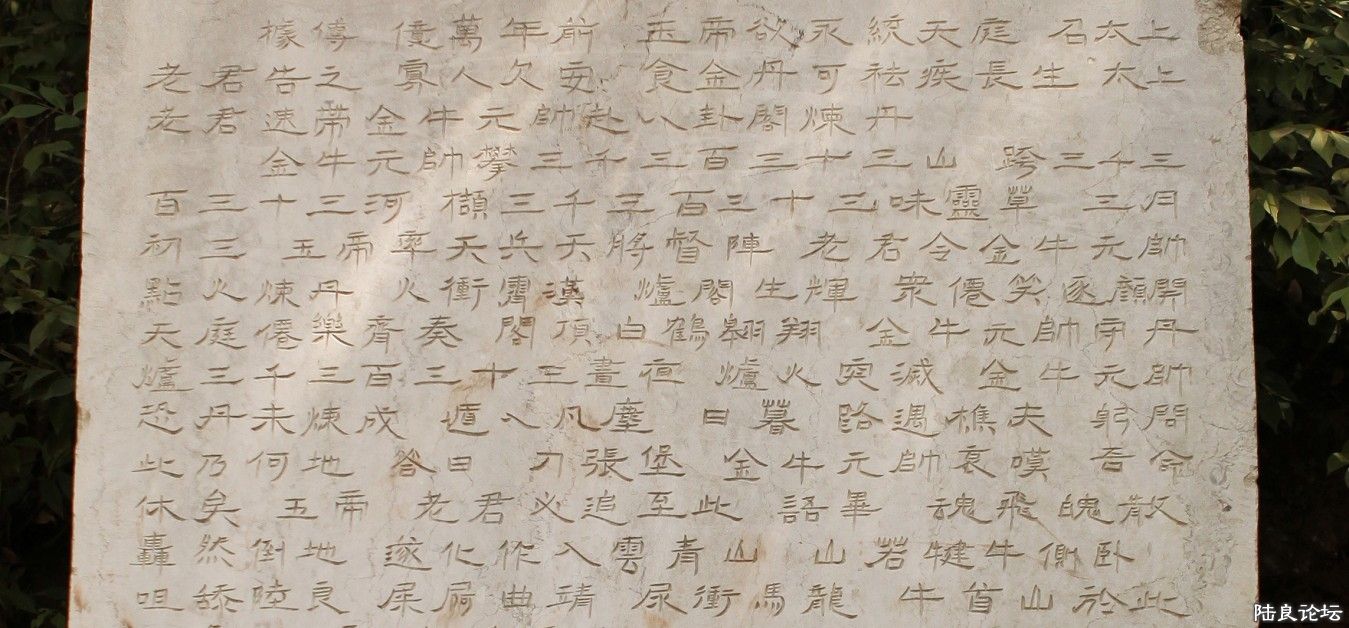 據傳 億萬年前 玉帝欲永統天庭 召太上
老君告之 寡人欠安 食金丹可祛疾長生 太上
老君速帶金牛元帥赴八卦閣煉丹
金牛元帥攀三千三百三十三山 跨三千三
百三十三河 擷三千三百三十三味靈草 三月
初三 玉帝率天兵天將督陣 老君令金牛元帥
點火煉丹 火衝霄漢 爐閣生輝 衆僊笑逐顏開
天庭僊樂齊奏 閣頂白鶴翱翔 金牛元帥守丹
爐三千三百三十三晝夜 爐火突滅 金牛元帥
恐丹未煉成 遁入凡塵 日暮 路遇樵夫 躬問
此乃何地 答曰 刀張堡 金牛元帥哀嘆 吾命
休矣 玉帝 老君必追至此 語畢 魂飛魄散
轟然倒地 遂化作入雲青山 山若犍牛側臥
咀舔陸良 屎屙曲靖 尿衝馬龍 牛首山於此
陆良论坛